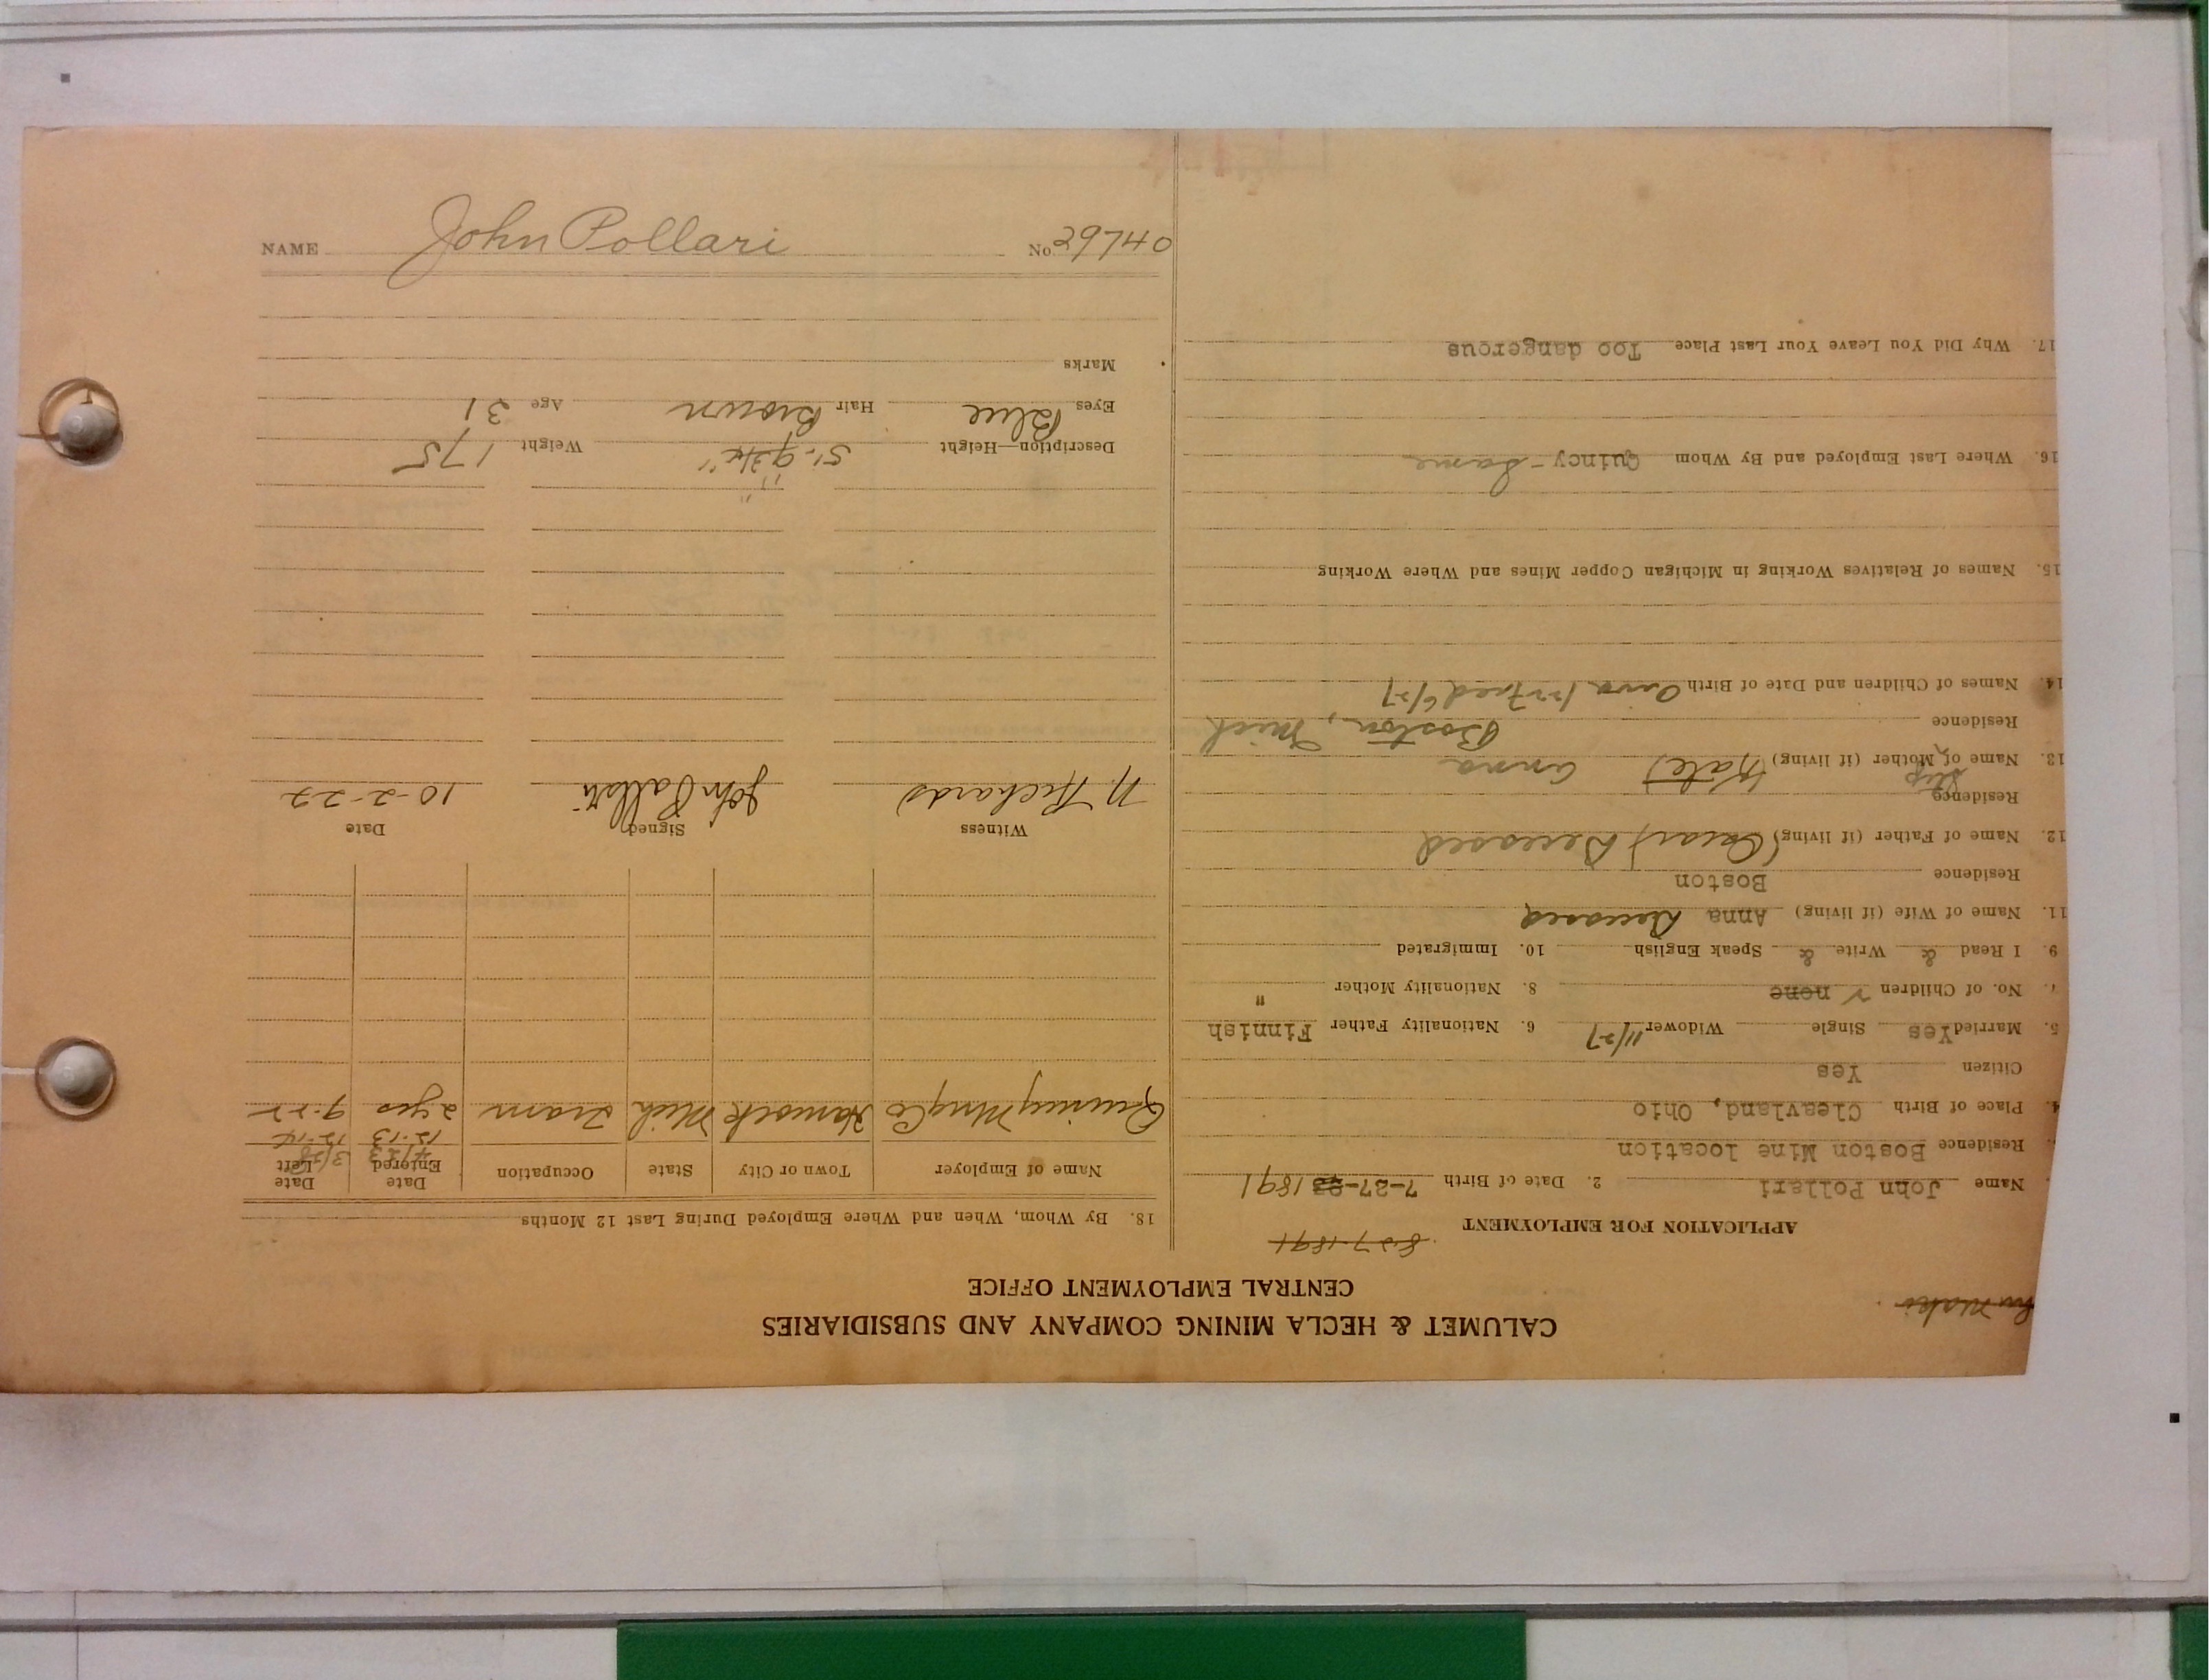 CALUMET & HECLA MINING COMPANY AND SUBSIDIARIES
CENTRAL EMPLOYMENT OFFICE
8-27-1891
APPLICATION FOR EMPLOYMENT
Name John Pollari 2. Date of Birth 7-27-93 1891
Residence Boston Mine location
4. Place of Birth Cleavland, Ohio
Citizen Yes
5. Married Yes Single Widower 11/27 6. Nationality Father Finnish
7. No. of Children none 8. Nationality Mother "
9. I Read & Write & Speak English 10. Immigrated
11. Name of Wife (if living) Anna Deceased
Residence Boston
12. Name of Father (if living) (Oscar) Deceased
Residence
13. Name of Step Mother (if living) Kate Anna
Residence Boston, Mich
14. Names of Children and Date of Birth
15. Names of Relatives Working in Michigan Copper Mines and Where Working
16. Where Last Employed and By Whom Quincy - Same
17. Why Did You Leave Your Last Place Too dangerous
18. By Whom, When and Where Employed During Last 12 Months
Name of Employer Town or City State Occupation Date Entered Date Left
4/23 3/28
12-13 12-14
Quincy Mng Co Hancock Mich Tram 2 yrs 9-22
Witness Signed Date
N. Richards John Pallari 10-2-22
Description—Height 5'-9 3/4" Weight 175
Eyes Blue Hair Brown Age 31
Marks
NAME John Pollari No. 29740